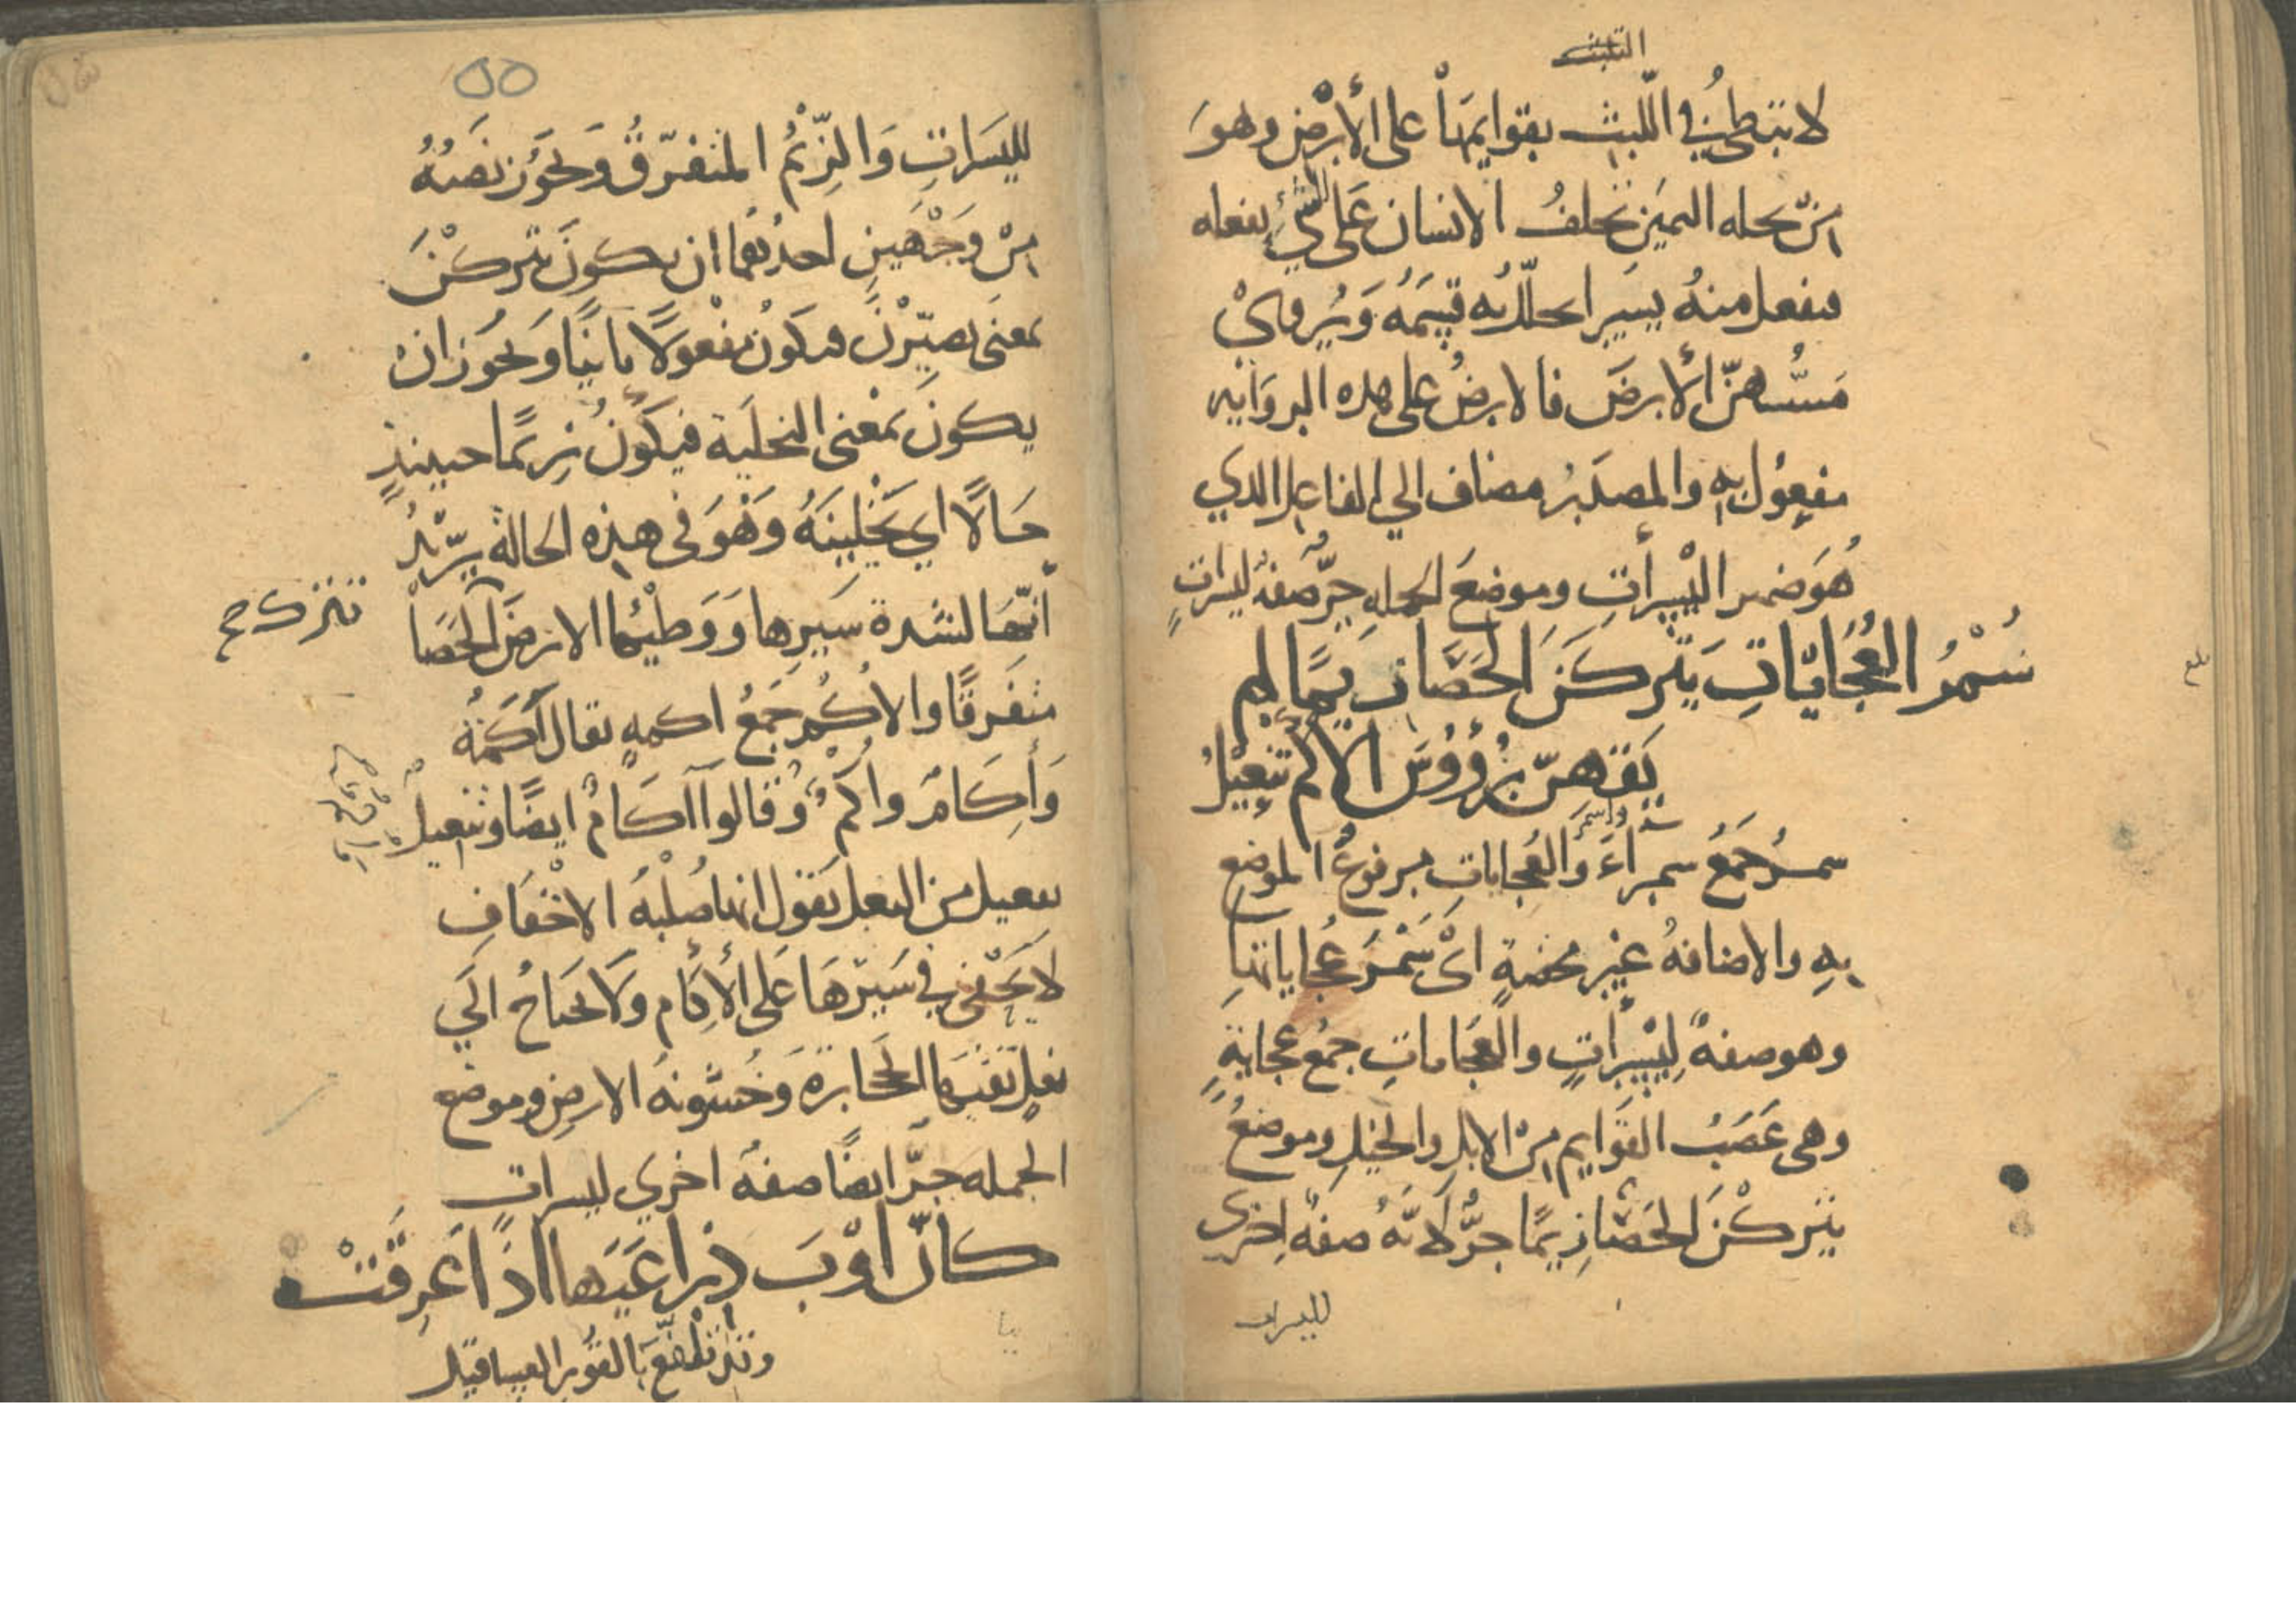 التلبث
لا تبطئ في اللبث بقوايمها على الأرض وهو
من تحله اليمين تحلف الانسان على الشي ليفعله
فيفعل منه يسيرا يحلل به قسمه ويروي
مسّهنّ الأرض فالارض على هذه الرواية
مفعول به والمصدر مضاف الي الفاعل الذي
هو ضمير اليسرات وموضع الجمله جرّ صفة ليسرات
سُمْرُ العُجَايَاتِ يَتْركنَ الحَصَا زِيَمًا لم
يَقِهنّ رُؤوُسَ الأكم تنعيلُ
سمر جمع سمراء وأسمر والعجايات مرفوع الموضع
به والاضافة غير محضة اي سمر عجاياتها
وهو صفة ليسرات والعجايات جمع عجاية
وهي عصب القوايم من الابل والخيل وموضع
يتركن الحصا زيما جرّ لانه صفة اخرى
لليسرات
٥٥
لليسرات والزيم المتفرّق ويجوز نصبه
من وجهين احدهما ان يكون يتركن
بمعنى يصيّرن فيكون مفعولا ثانيا ويجوز ان
يكون بمعنى التخلية فيكون زيما حينيذ
حالا اي يخلينه وهو في هذه الحالة يريد
أنها لشدة سيرها ووطئها الارض الحصا
تتركه
متفرقا والاكم جمع اكمه يقال أكمة
وأكام وأكم وقالوا آكام ايضا وتنعيل
تفعيل من النعل يقول انها صلبة الاخفاف
لا تحفى في سيرها على الأكام ولا تحتاج الي
نعل تقيها الحجارة وخشونة الارض وموضع
الجمله جرّ ايضا صفة اخري ليسرات
كأنّ أوْبَ ذِراعَيها اذا عَرِقَتْ
وقد تلفّع بالقور العساقيل